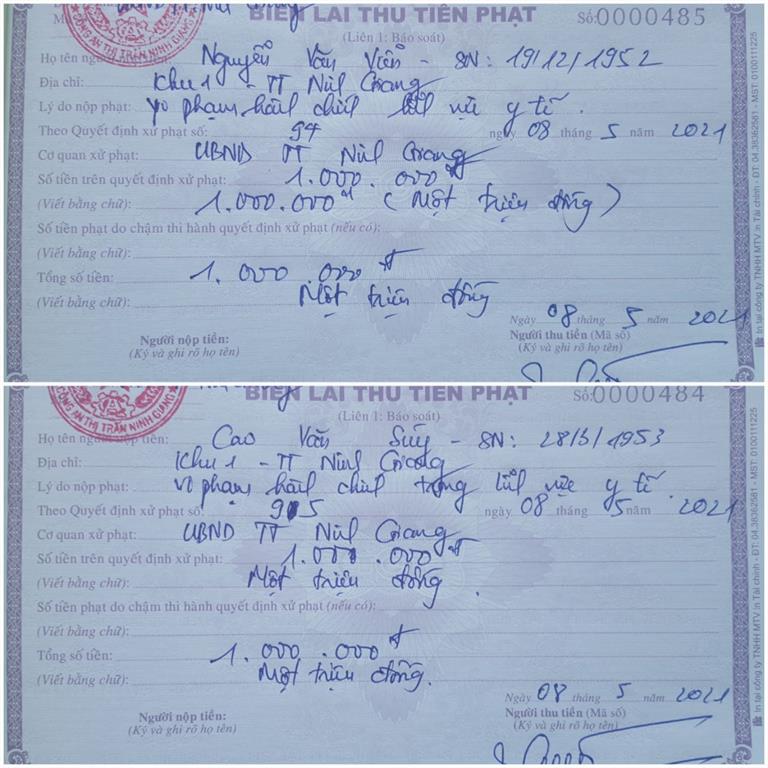 BIÊN LAI THU TIỀN PHẠT Số: 0000485
CÔNG AN THỊ TRẤN NINH GIANG
(Liên 1: Báo soát)
Họ tên người nộp tiền: Nguyễn Văn Viễn - SN: 19/12/1952
Địa chỉ: Khu 1 - TT Ninh Giang
Lý do nộp phạt: Vi phạm hành chính lĩnh vực y tế.
Theo Quyết định xử phạt số: 94 ngày 08 tháng 5 năm 2021
Cơ quan xử phạt: UBND TT Ninh Giang
Số tiền trên quyết định xử phạt: 1.000.000đ
(Viết bằng chữ): 1.000.000đ (Một triệu đồng)
Số tiền phạt do chậm thi hành quyết định xử phạt (nếu có):
(Viết bằng chữ):
Tổng số tiền: 1.000.000đ
(Viết bằng chữ): Một triệu đồng
Ngày 08 tháng 5 năm 2021
Người nộp tiền: Người thu tiền (Mã số)
(Ký và ghi rõ họ tên) (Ký và ghi rõ họ tên)
In tại công ty TNHH MTV in Tài chính - ĐT: 04.38362581 - MST: 0100111225
BIÊN LAI THU TIỀN PHẠT Số: 0000484
CÔNG AN THỊ TRẤN NINH GIANG
(Liên 1: Báo soát)
Họ tên người nộp tiền: Cao Văn Súy - SN: 28/3/1953
Địa chỉ: Khu 1 - TT Ninh Giang
Lý do nộp phạt: Vi phạm hành chính trong lĩnh vực y tế
Theo Quyết định xử phạt số: 95 ngày 08 tháng 5 năm 2021
Cơ quan xử phạt: UBND TT Ninh Giang
Số tiền trên quyết định xử phạt: 1.000.000đ
(Viết bằng chữ): Một triệu đồng.
Số tiền phạt do chậm thi hành quyết định xử phạt (nếu có):
(Viết bằng chữ):
Tổng số tiền: 1.000.000đ
(Viết bằng chữ): Một triệu đồng.
Ngày 08 tháng 5 năm 2021
Người nộp tiền: Người thu tiền (Mã số)
(Ký và ghi rõ họ tên) (Ký và ghi rõ họ tên)
In tại công ty TNHH MTV in Tài chính - ĐT: 04.38362581 - MST: 0100111225